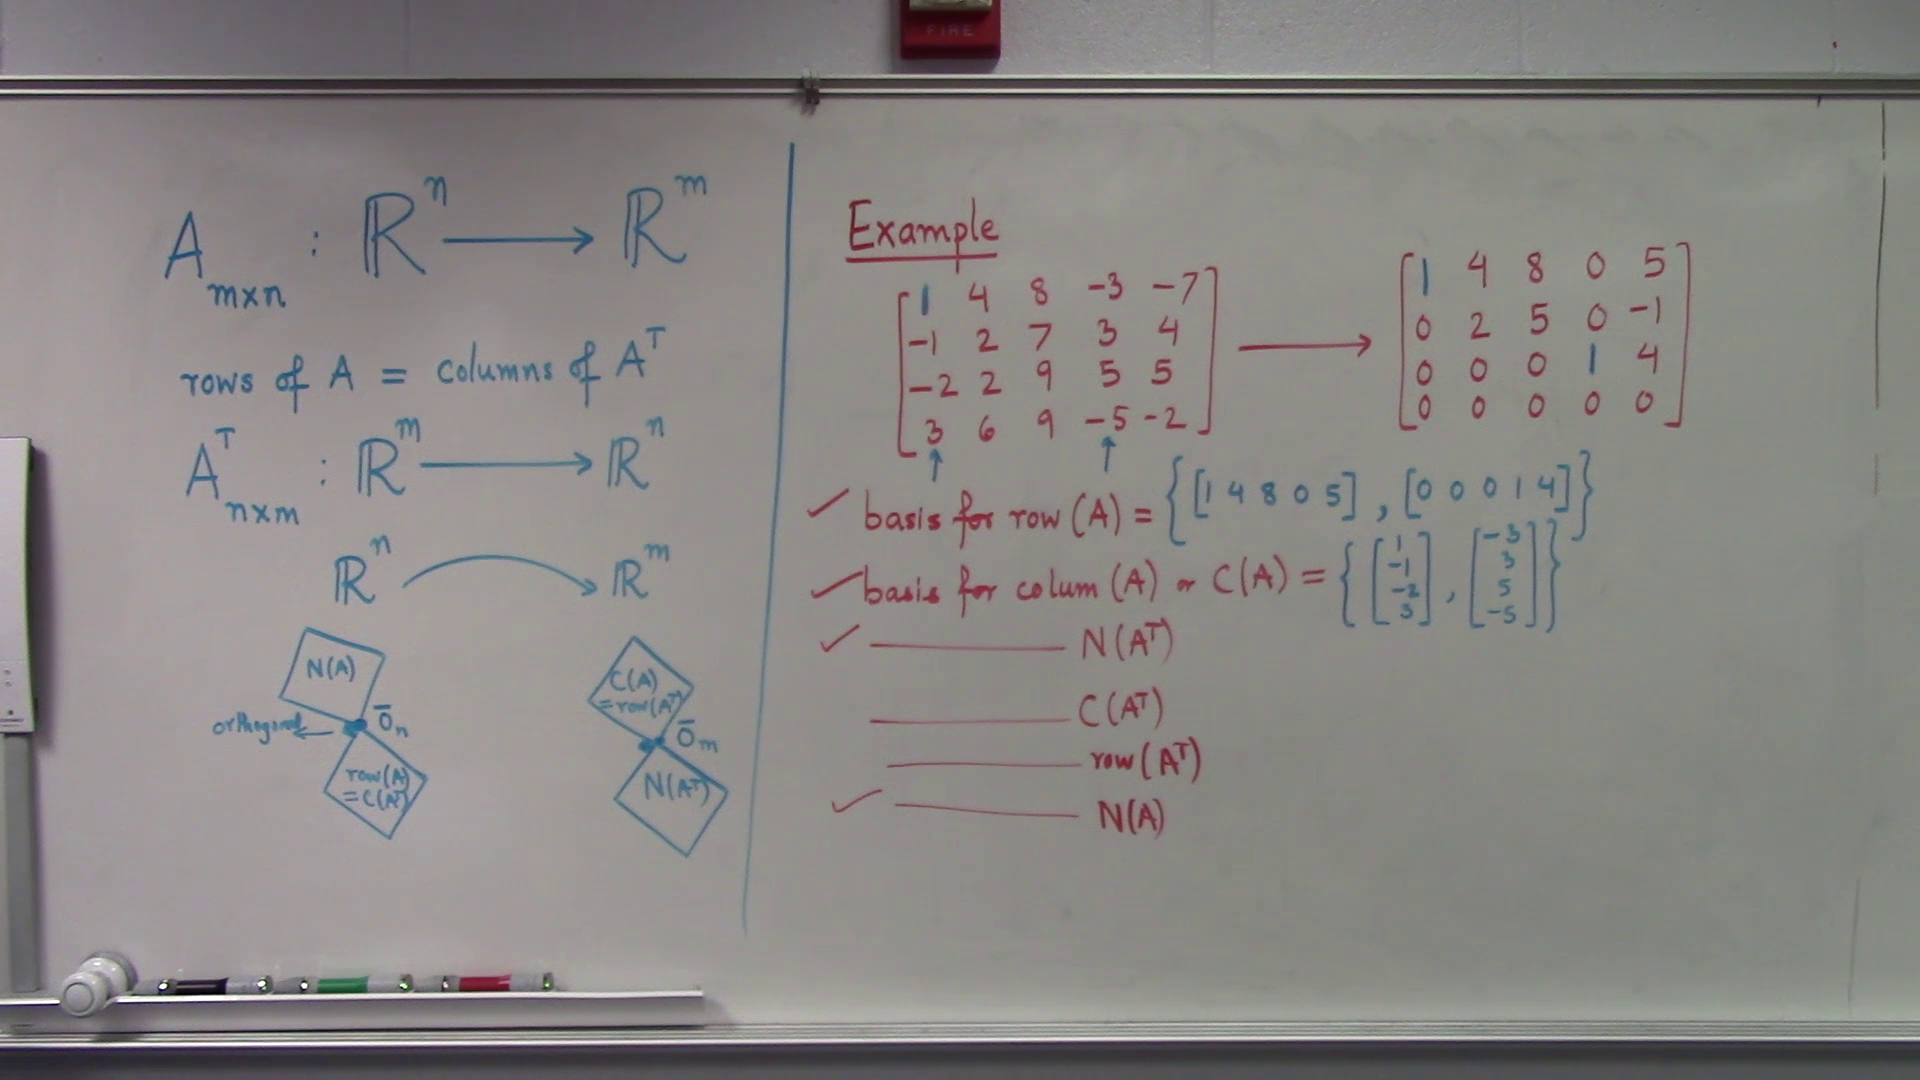 FIRE
A m×n : ℝⁿ ⟶ ℝᵐ
rows of A = columns of Aᵀ
Aᵀ n×m : ℝᵐ ⟶ ℝⁿ
ℝⁿ ⟶ ℝᵐ
N(A)
orthogonal ← 0̄ₙ
row(A)
= C(Aᵀ)
C(A)
= row(Aᵀ)
0̄ₘ
N(Aᵀ)
Example
[1 4 8 -3 -7] ⟶ [1 4 8 0 5]
[-1 2 7 3 4] [0 2 5 0 -1]
[-2 2 9 5 5] [0 0 0 1 4]
[3 6 9 -5 -2] [0 0 0 0 0]
↑ ↑
✓ basis for row (A) = {[1 4 8 0 5], [0 0 0 1 4]}
✓ basis for colum (A) or C(A) = {[1 -1 -2 3], [-3 3 5 -5]}
✓ ———— N(Aᵀ)
———— C(Aᵀ)
———— row(Aᵀ)
✓ ———— N(A)